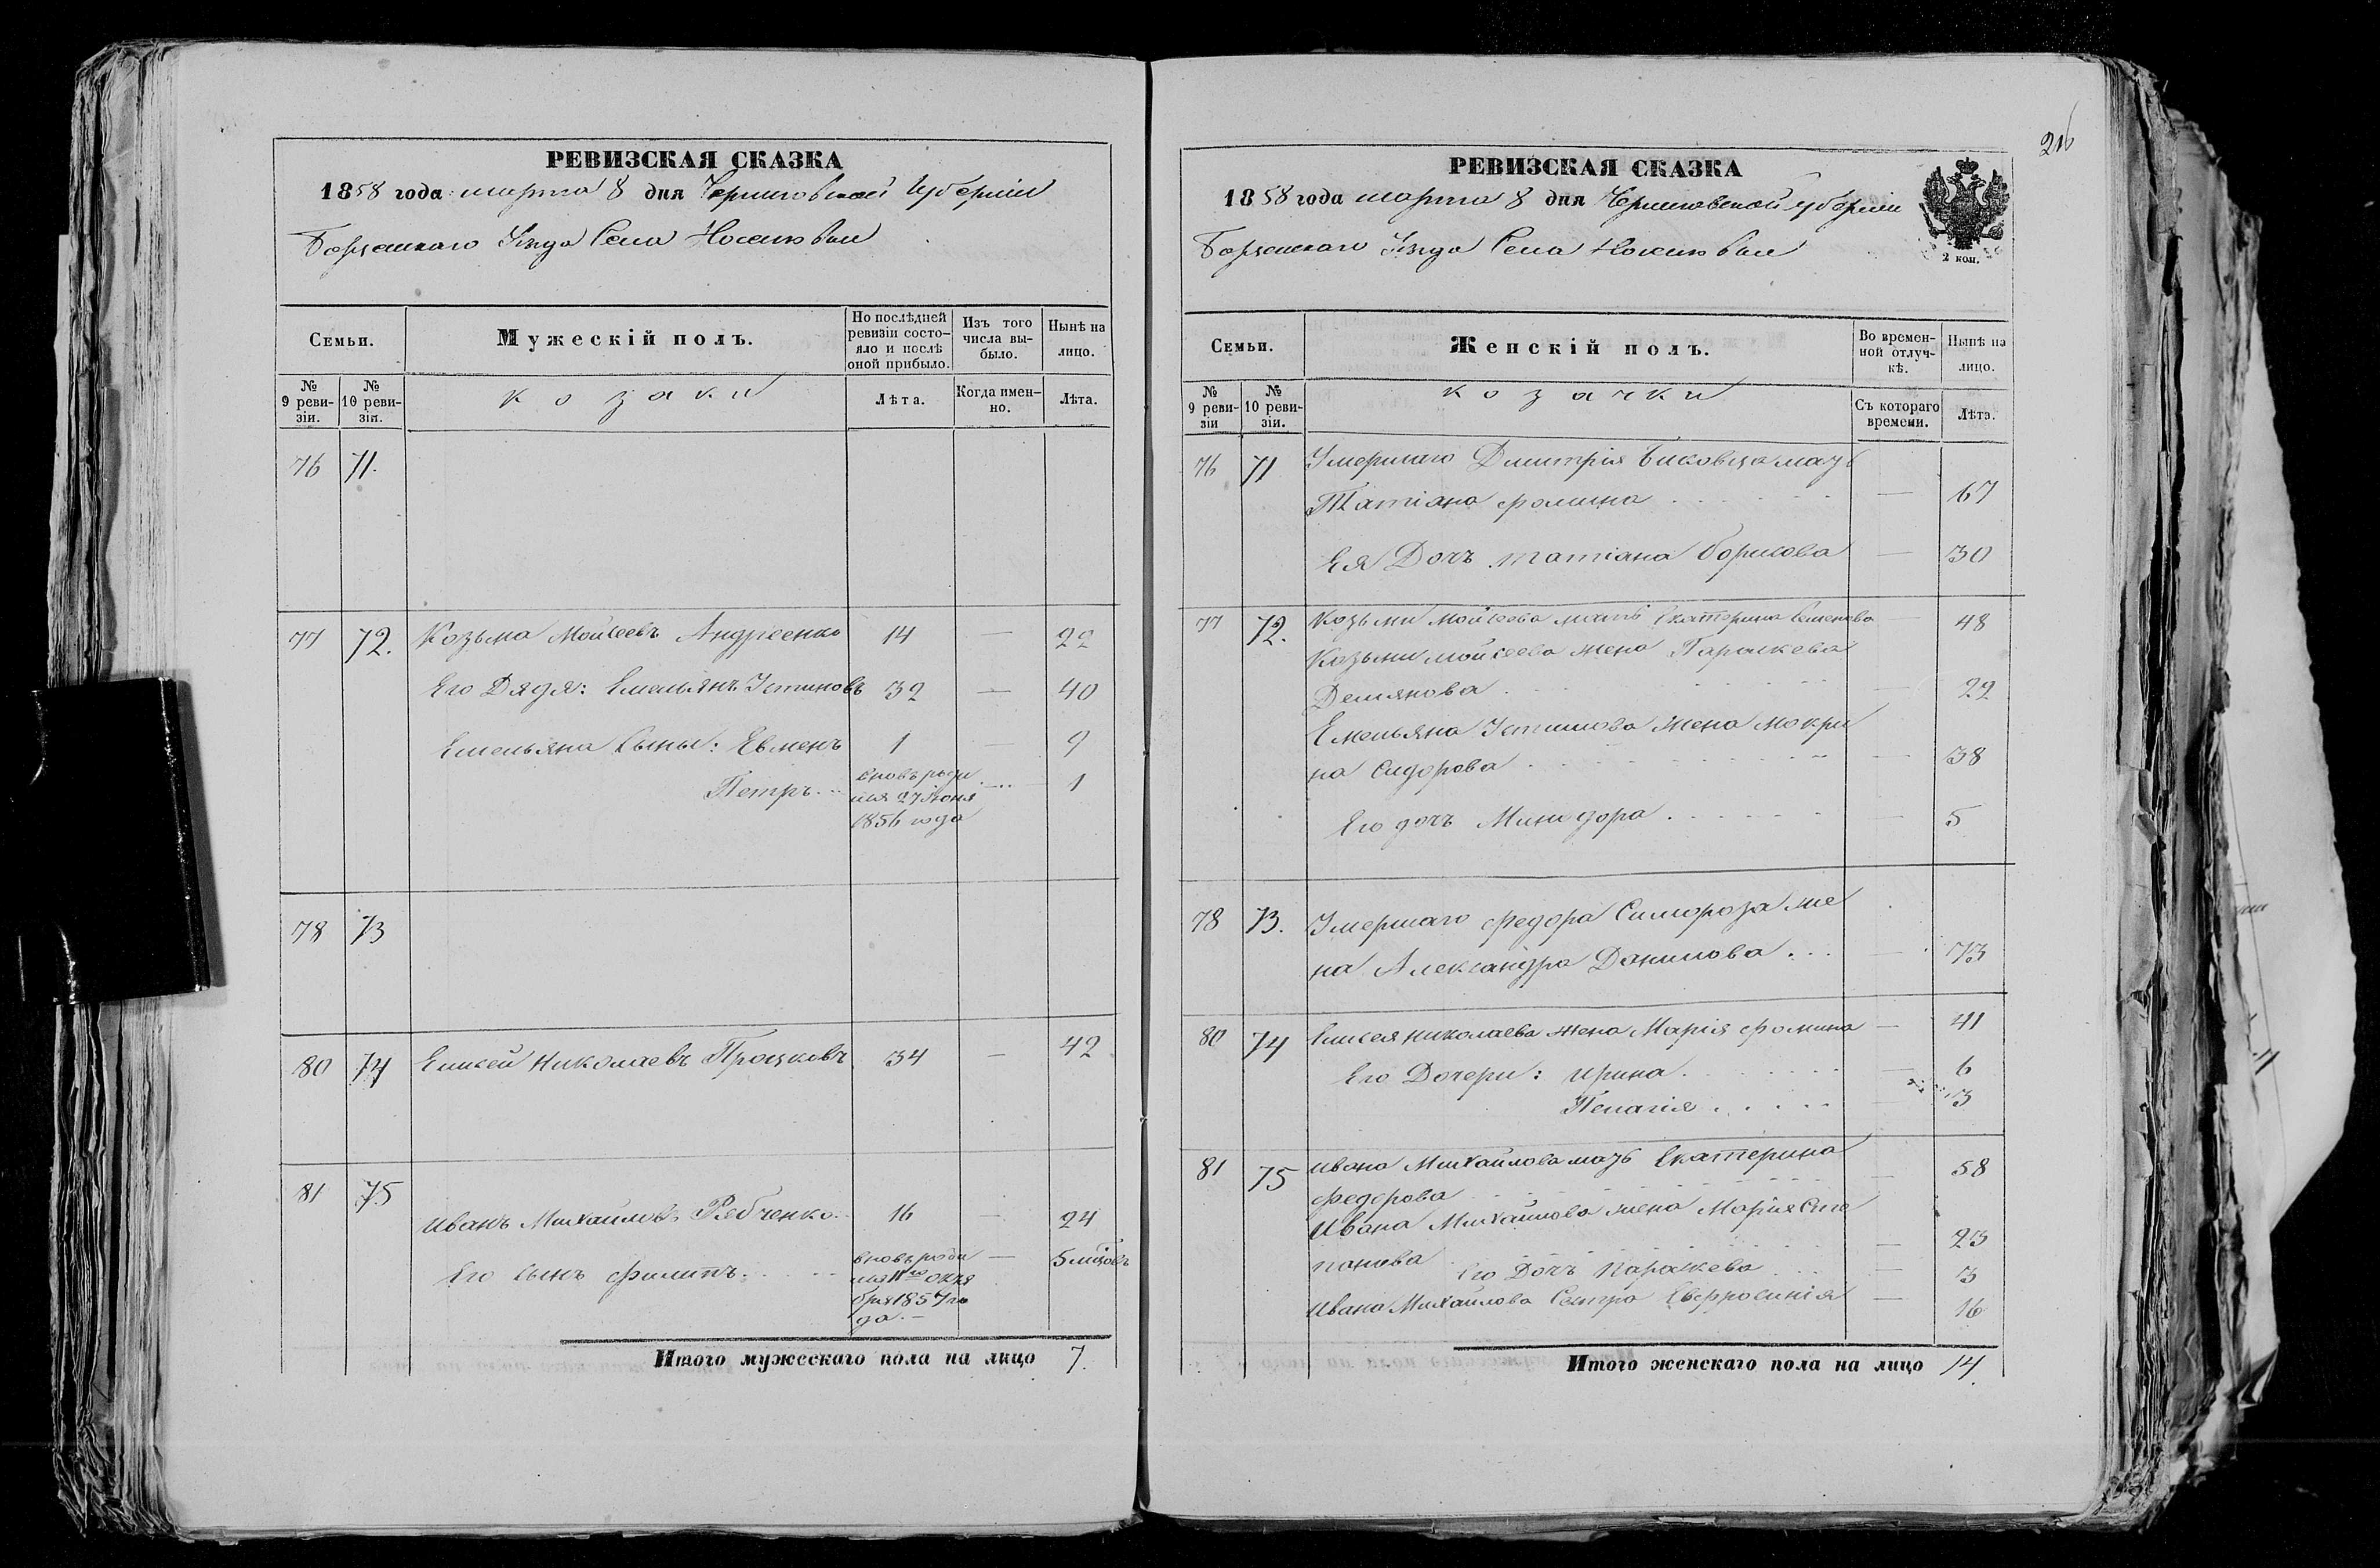 РЕВИЗСКАЯ СКАЗКА
1858 года марта 8 дня Черниговской Губерніи
Борзенскаго Уѣзда Села Носелювки
Семьи.
Мужескій полъ.
По послѣдней ревизіи состояло и послѣ оной прибыло.
Изъ того числа выбыло.
Нынѣ на лицо.
№ 9 ревизіи.
№ 10 ревизіи.
козаки
Лѣта.
Когда именно.
Лѣта.
76 71.
77 72. Козьма Мойсеевъ Андреенко 14 — 22
Его Дядя: Емельянъ Устиновъ 32 — 40
Емельяна Сыны: Евменъ 1 — 9
Петръ. вновь роди — 1
лся 27 Іюня
1856 года
78 73
80 74 Елисей Николаевъ Процковъ 34 — 42
81 75
Иванъ Михайловъ Рябченко. 16 — 24
Его Сынъ Филипъ. вновь роди — 5 мѣсяцовъ
лся
октя
бря 1857 го
да. —
Итого мужескаго пола на лицо 7.
216
РЕВИЗСКАЯ СКАЗКА
1858 года марта 8 дня Черниговской губерніи
Борзенскаго Уѣзда Села Носелювки
2 коп.
Семьи.
Женскій полъ.
Во временной отлучкѣ.
Нынѣ на лицо.
№ 9 ревизіи
№ 10 ревизіи.
козачки
Съ котораго времени.
Лѣта.
76 71 Умершаго Дмитрія Биковца мать
Татіана Фомина — 67
Ея Дочь Татіана Борисова — 30
77 72. Козьми Мойсеева мать Екатерина Семенова — 48
Козьми Мойсеева жена Параскева
Демянова — 22
Емельяна Устинова жена Мокри
на Сидорова — 38
Его дочь Минодора — 5
78 73. Умершаго Федора Симороза же
на Александра Данилова — 73
80 74 Елисея Николаева жена Марія Фомина — 41
Его Дочери: Ирина — 6
Пелагія — 3
81 75 Ивана Михайлова мать Екатерина
Федорова — 58
Ивана Михайлова жена Марія Сте
панова — 23
Его Дочь Параскева — 3
Ивана Михайлова Сестра Евфросинія — 16
Итого женскаго пола на лицо 14.